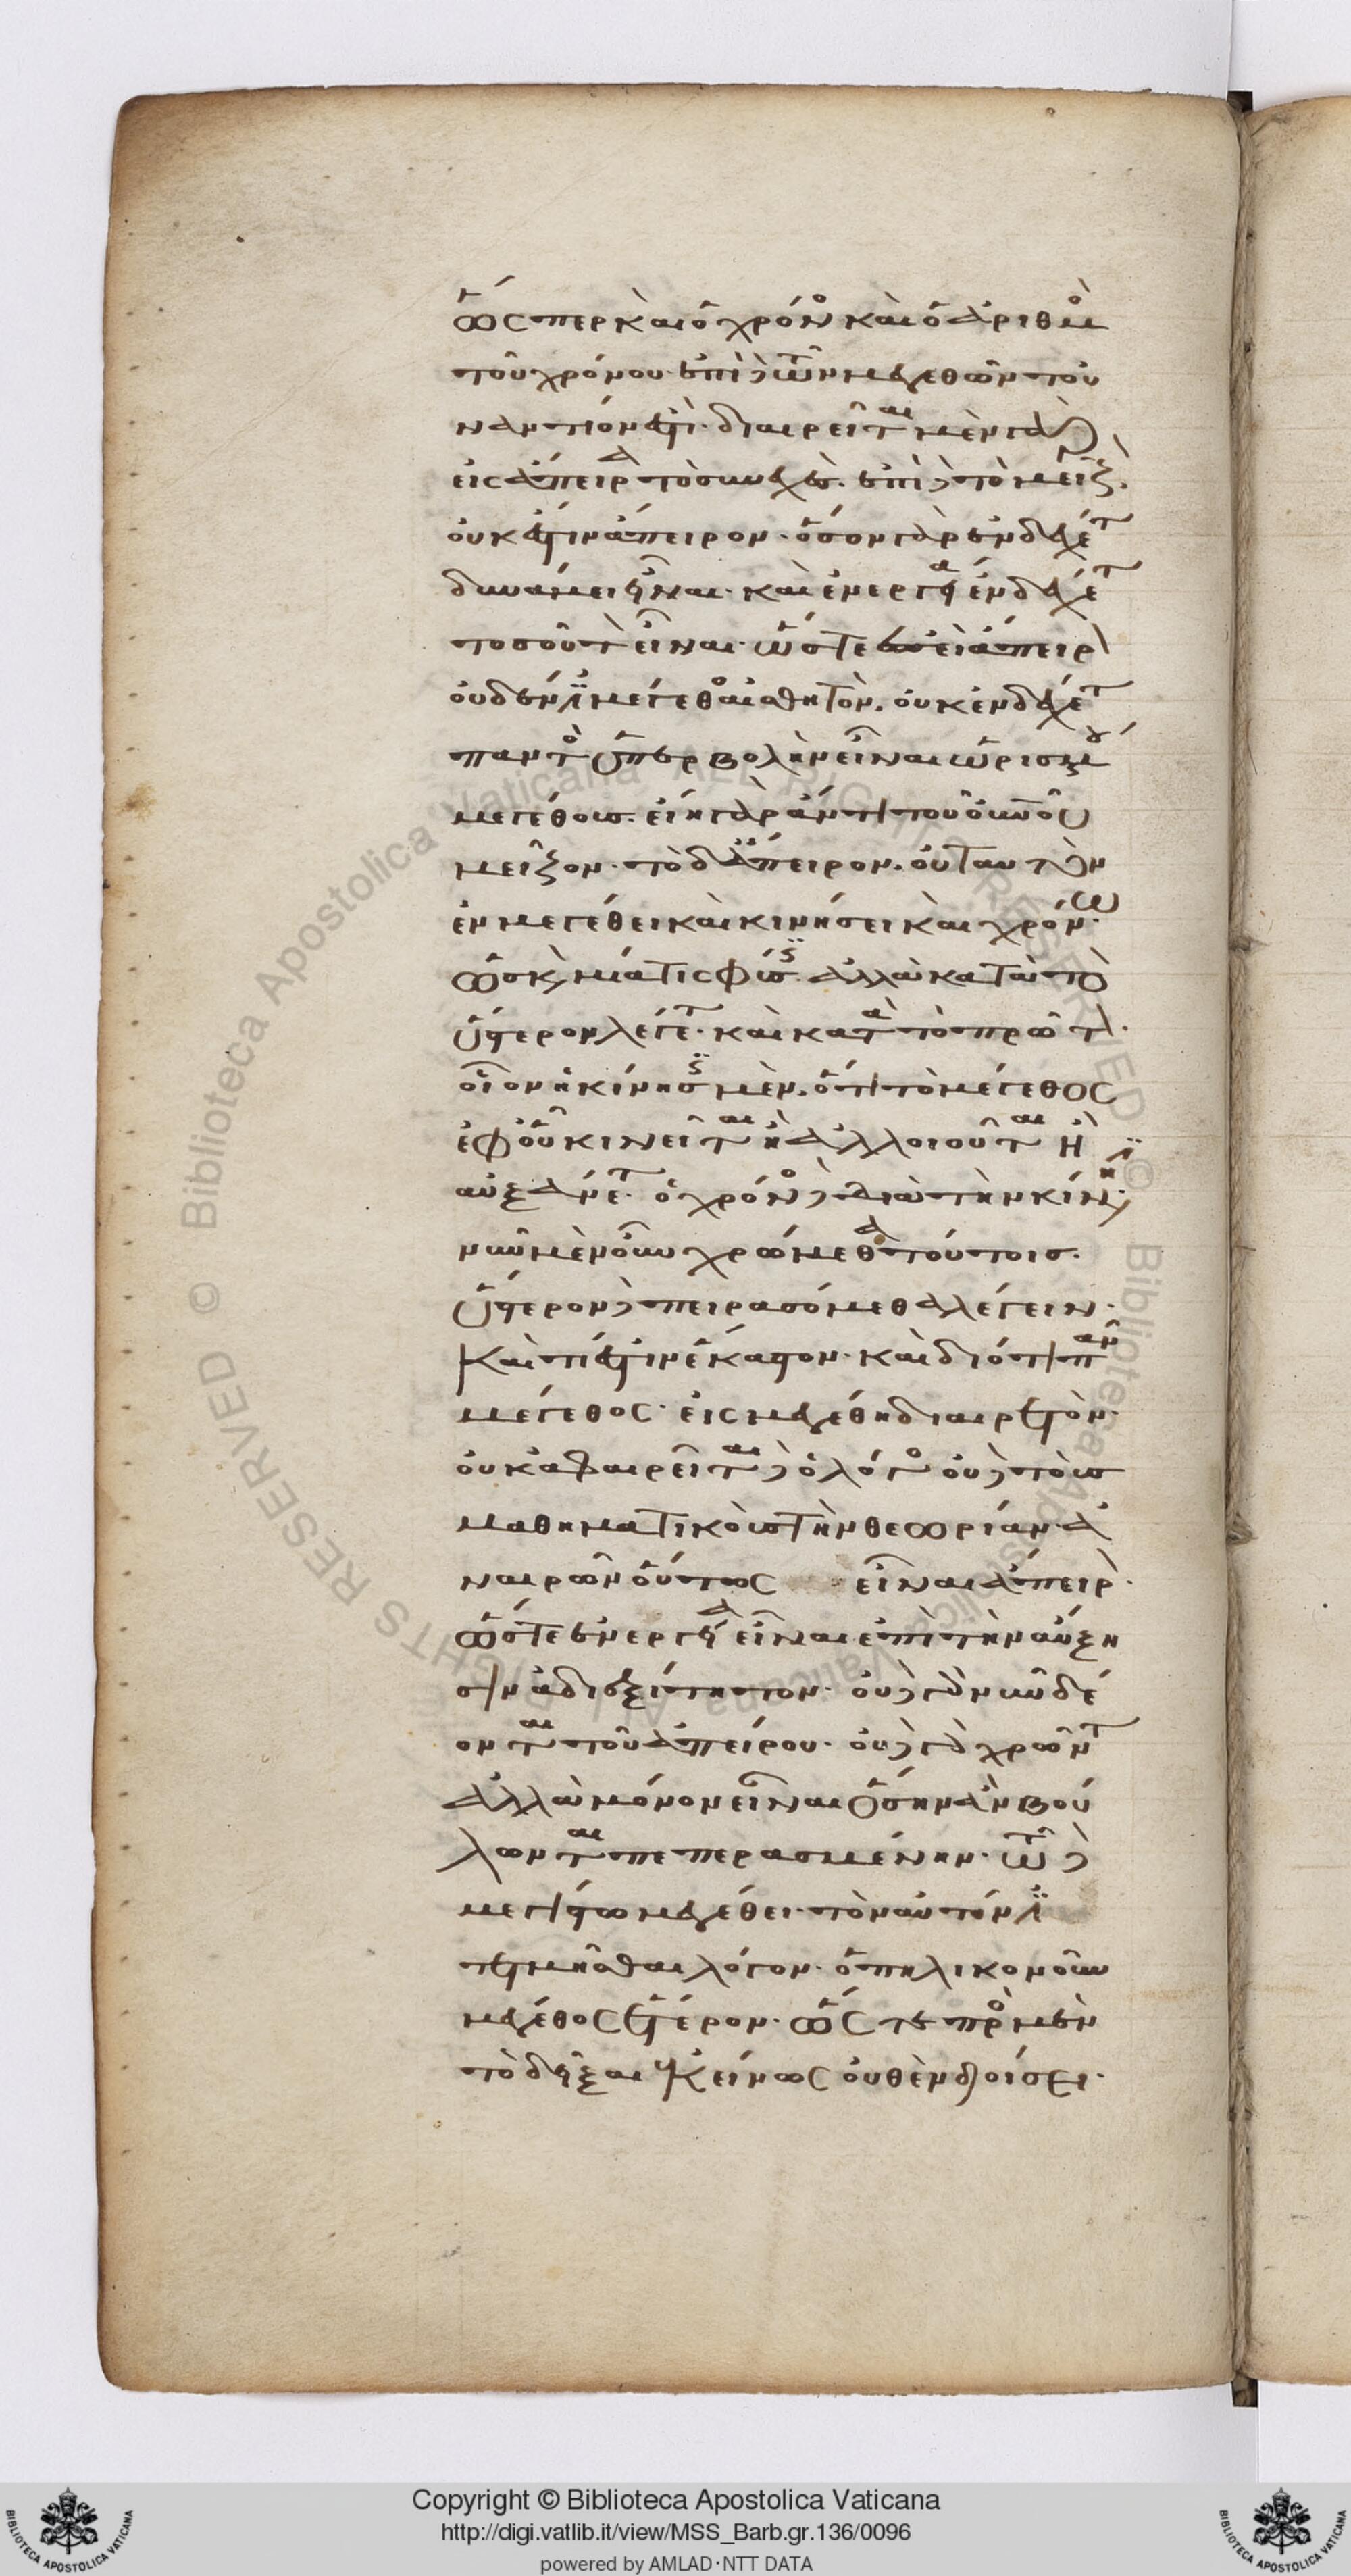 ὥσπερ καὶ ὁ χρόνος καὶ ὁ ἀριθμὸς
τοῦ χρόνου. ἐπὶ δὲ τῶν μεγεθῶν τοὐ
ναντίον ἐστὶ. διαιρεῖται μὲν γὰρ
εἰς ἄπειρα τὸ συνεχές. ἐπὶ δὲ τὸ μεῖζον.
οὐκ ἔστιν ἄπειρον. ὅσον γὰρ ἐνδέχεται
δυνάμει εἶναι. καὶ ἐνεργείᾳ ἐνδέχεται
τοσοῦτον εἶναι. ὥστε ἐπεὶ ἄπειρον
οὐδέν ἐστι μέγεθος αἰσθητὸν. οὐκ ἐνδέχεται
παντὸς ὑπερβολὴν εἶναι ὡρισμένου
μεγέθους. εἴη γὰρ ἄν τι τοῦ οὐρανοῦ
μεῖζον. τὸ δ' ἄπειρον. οὐ ταυτὸν
ἐν μεγέθει καὶ κινήσει καὶ χρόνῳ.
ὥς τις μία φύσις. ἀλλὰ κατὰ τὸ
ὕστερον λέγεται. καὶ κατὰ τὸ πρῶτον.
οἷον ἡ κίνησις μὲν. ὅτι τὸ μέγεθος
ἐφ' οὗ κινεῖται ἢ ἀλλοιοῦται ἢ
αὐξάνεται. ὁ χρόνος δὲ διὰ τὴν κίνησιν.
νῦν μὲν οὖν χρώμεθα τούτοις.
ὕστερον δὲ πειρασόμεθα λέγειν.
καὶ τί ἐστιν ἕκαστον. καὶ διότι πᾶν
μέγεθος. εἰς μεγέθη διαιρετὸν.
οὐκ ἀφαιρεῖται δὲ ὁ λόγος οὐδὲ τοὺς
μαθηματικοὺς τὴν θεωρίαν. ἀ
ναιρῶν οὕτως εἶναι ἄπειρον.
ὥστε ἐνεργείᾳ εἶναι ἐπὶ τὴν αὔξη
σιν ἀδιεξίτητον. οὐδὲ γὰρ νῦν δέ
ονται τοῦ ἀπείρου. οὐδὲ γὰρ χρῶνται
ἀλλὰ μόνον εἶναι ὅσην ἂν βού
λωνται πεπερασμένην. τῷ δὲ
μεγίστῳ μεγέθει. τὸν αὐτόν ἐστι
τετμῆσθαι λόγον. ὁπηλικονοῦν
μέγεθος ἕτερον. ὥστε πρὸς μὲν
τὸ δεῖξαι ἐκείνως οὐθὲν διοίσει.